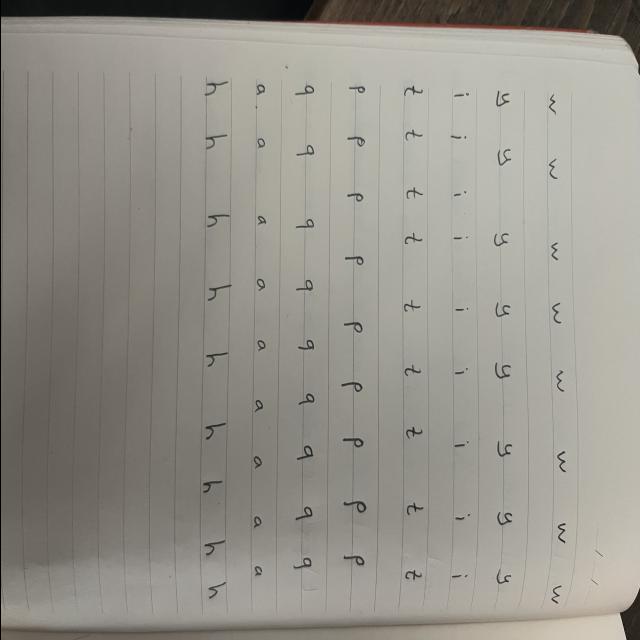 w w w w w w w w
y y y y y y y y
i i i i i i i i i
t t t t t t t t t
p p p p p p p p p
q q q q q q q q q
a a a a a a a a a
h h h h h h h h h